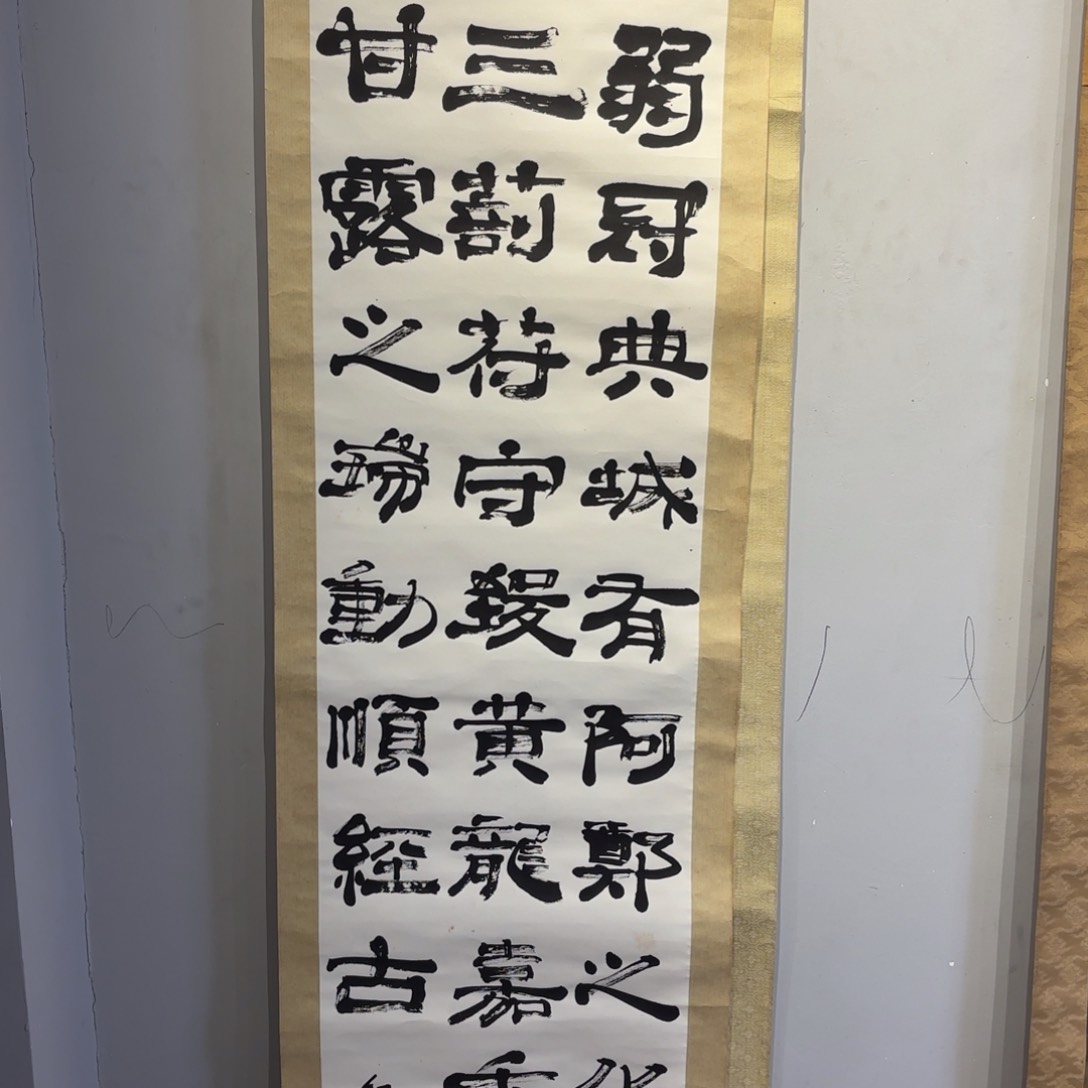 弱冠典城有阿鄭之
三剖苻守致黄龍嘉
甘露之瑞動順經古